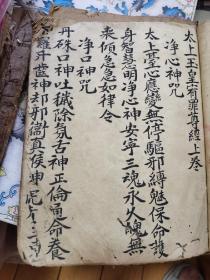 太上玉皇宥罪尊經上卷
净心神咒
太上臺心應變無停驅邪縛魅保命護
身智慧明净心神安寧三魂永久魄無
丧傾急急如律令
净口神咒
丹硃口神吐穢除氛古神正倫通命養
羅千齒神却邪衛真侯神